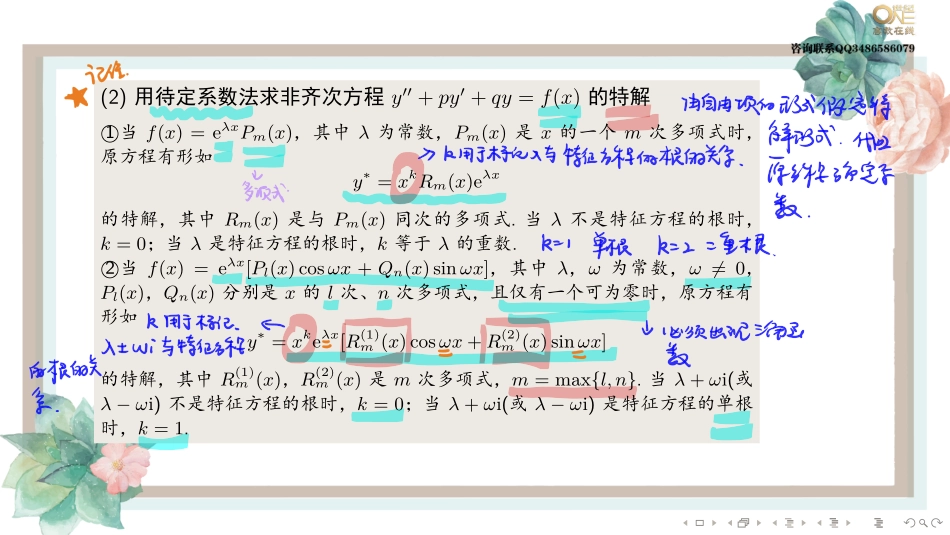 ONE
高数在线
咨询联系QQ3486586079
记住.
(2) 用待定系数法求非齐次方程 y′′ + py′ + qy = f(x) 的特解
由自由项的形式假定特
解形式. 代回
原给定方程定系
数.
①当 f(x) = e^{λx}P_m(x)，其中 λ 为常数，P_m(x) 是 x 的一个 m 次多项式时，
原方程有形如
k用于标记λ与特征方程的根的关系.
多项式
y* = x^k R_m(x)e^{λx}
的特解，其中 R_m(x) 是与 P_m(x) 同次的多项式. 当 λ 不是特征方程的根时，
k = 0；当 λ 是特征方程的根时，k 等于 λ 的重数.
k=1 单根 k=2 二重根.
②当 f(x) = e^{λx}[P_l(x) cos ωx + Q_n(x) sin ωx]，其中 λ，ω 为常数，ω ≠ 0，
P_l(x)，Q_n(x) 分别是 x 的 l 次、n 次多项式，且仅有一个可为零时，原方程有
形如
k用于标记.
λ±ωi与特征方程
的根的关
系.
y* = x^k e^{λx}[R_m^{(1)}(x) cos ωx + R_m^{(2)}(x) sin ωx]
必须出现三角函
数
的特解，其中 R_m^{(1)}(x)，R_m^{(2)}(x) 是 m 次多项式，m = max{l, n}. 当 λ + ωi(或
λ − ωi) 不是特征方程的根时，k = 0；当 λ + ωi(或 λ − ωi) 是特征方程的单根
时，k = 1.